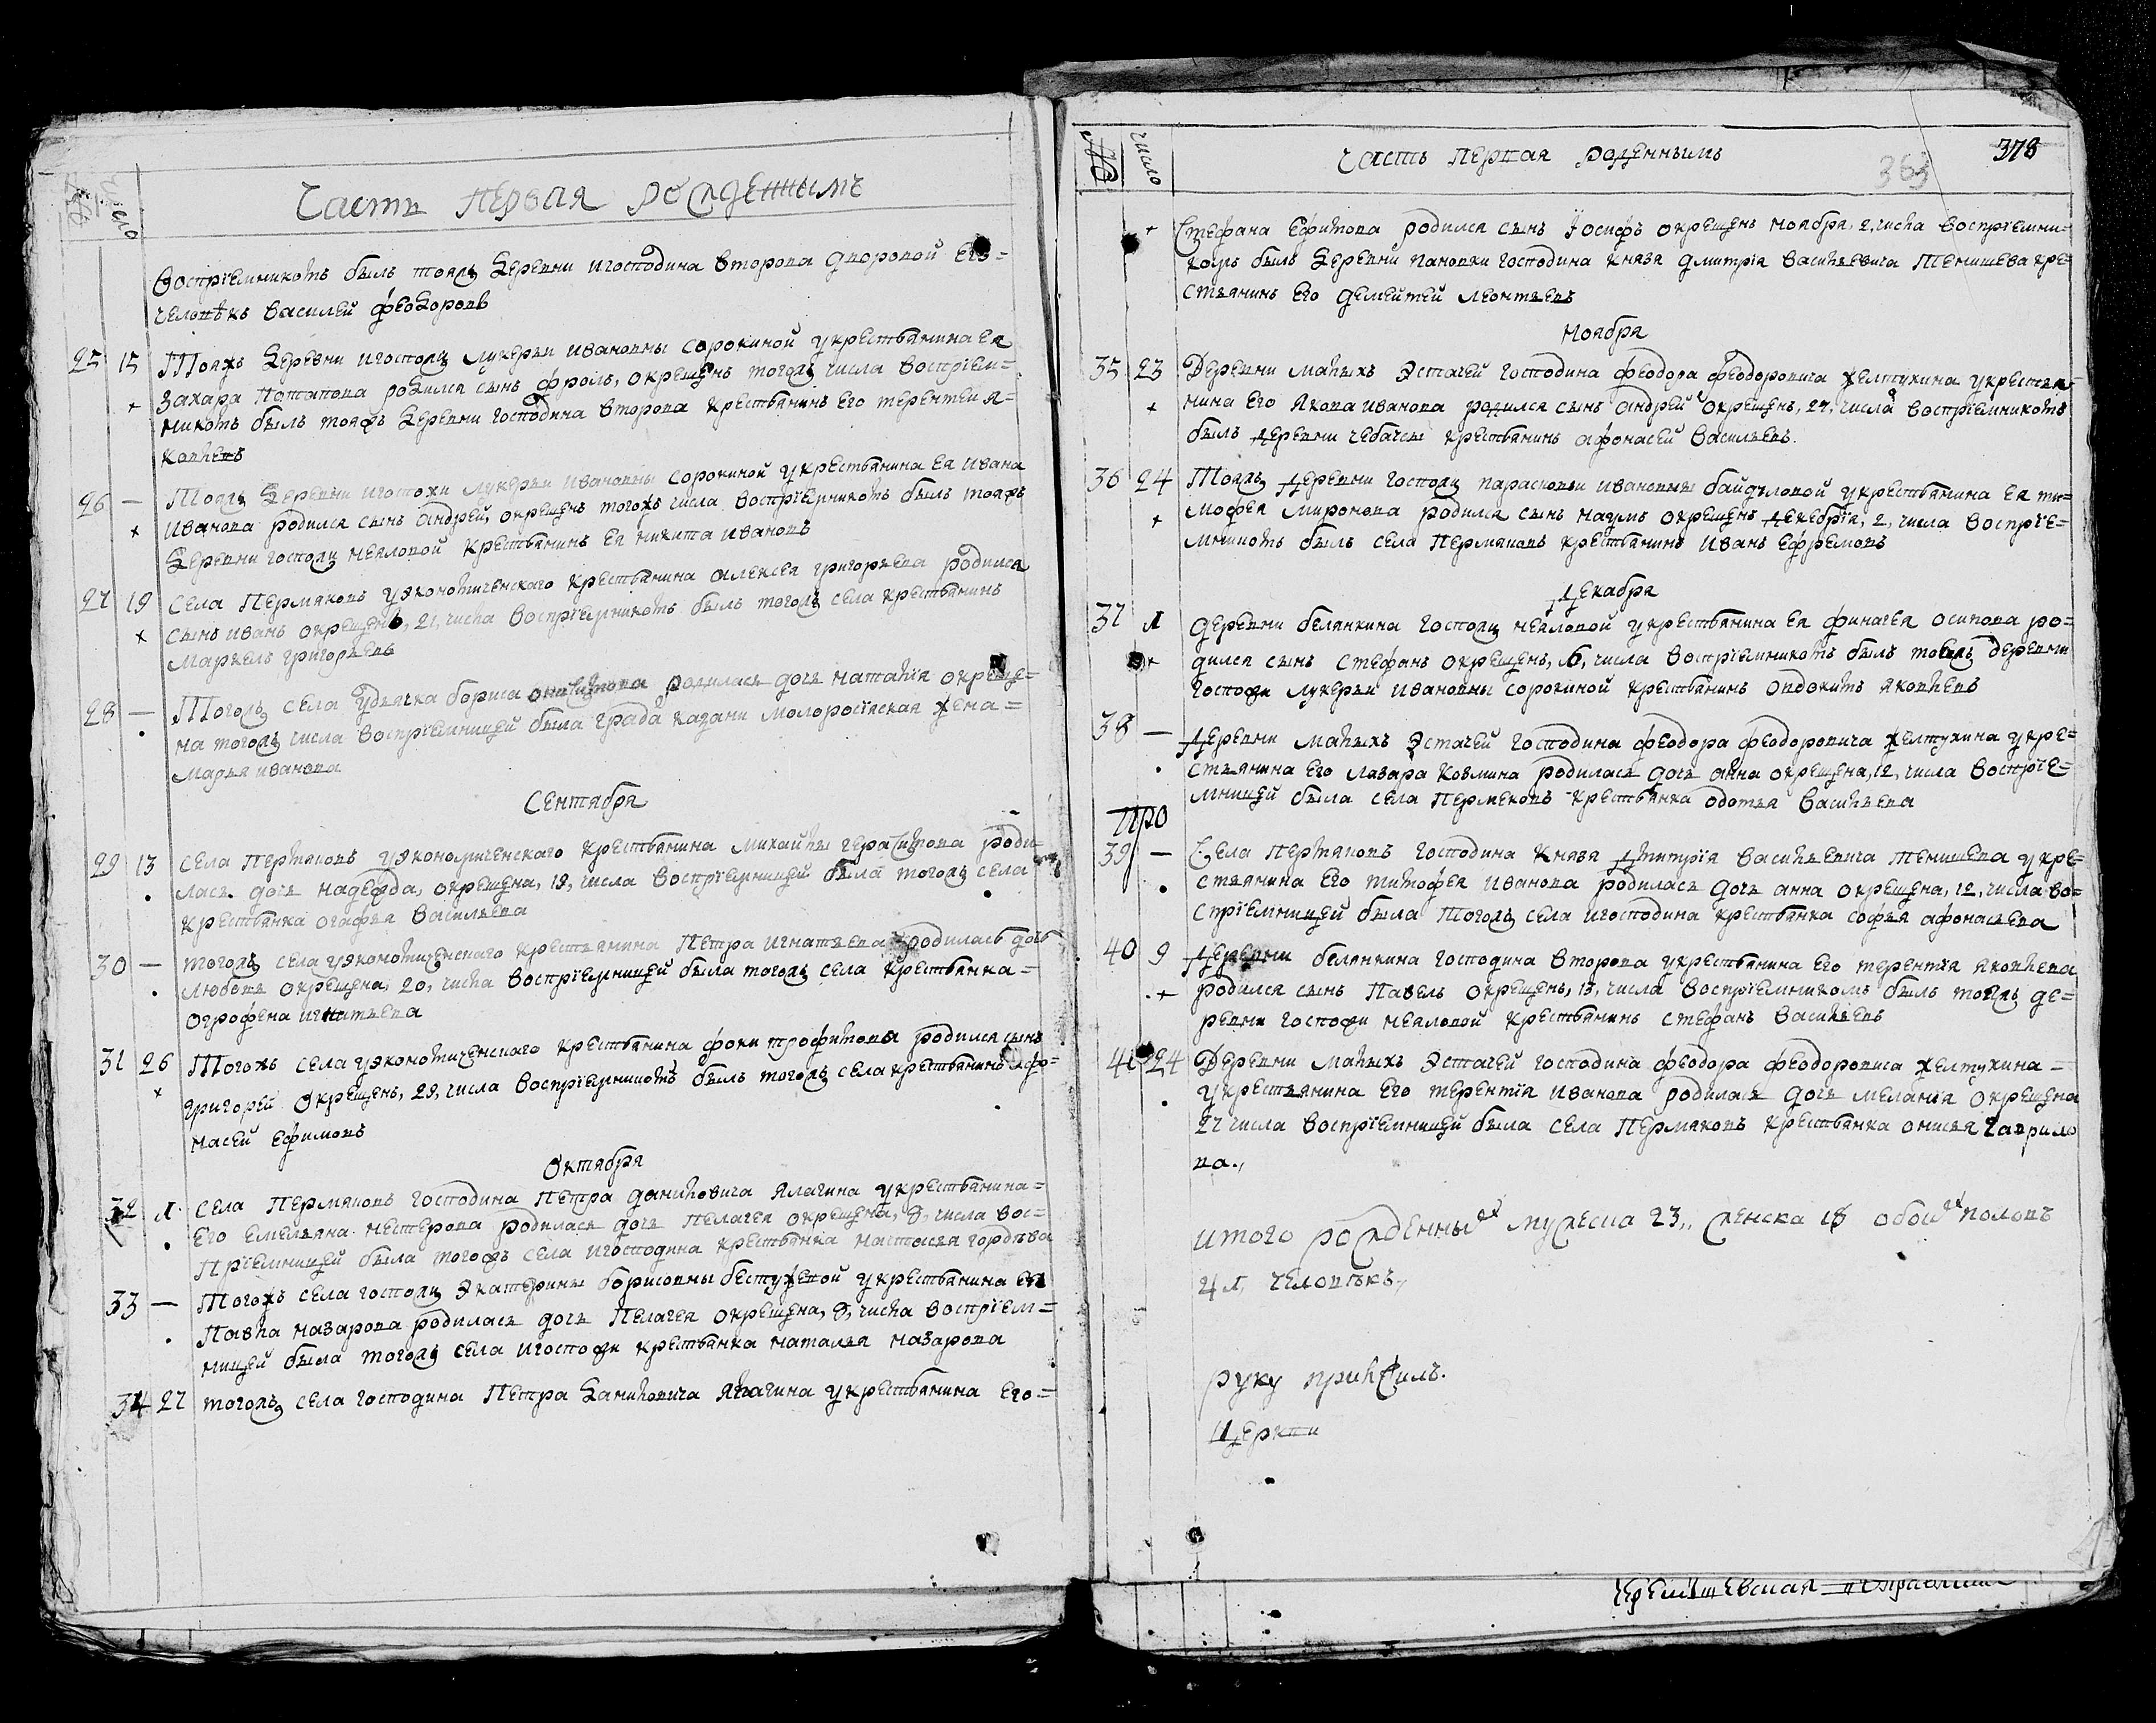 №
Число
Часть первая рожденнымъ
Воспрїемникомъ былъ тояжъ деревни игосподина Второва дворовой его=
человѣкъ Василей Феодоровъ
25 15 Тояжъ деревни игоспожи Лукерьи Ивановны Сорокиной укрестьянина ея
Захара Потапова родился сынъ Фролъ, окрещенъ тогожъ числа воспрїем=
никомъ былъ тояжъ деревни господина Второва крестьянинъ его Терентей Я=
ковлевъ
26 — Тояжъ деревни игоспожи Лукерьи Ивановны Сорокиной укрестьянина ея Ивана
Иванова родился сынъ Андрей, окрещенъ тогожъ числа воспрїемникомъ былъ тояжъ
деревни госпожи Нееловой крестьянинъ ея Никита Ивановъ
27 19 Села Пермяковъ уэкономическаго крестьянина Алексея Григорьева родился
сынъ Иванъ окрещенъ, 21, числа воспрїемникомъ былъ тогожъ села крестьянинъ
Маркелъ Григорьевъ
28 — Тогожъ села удьячка Бориса родилась дочь Наталїя окреще=
на тогожъ числа воспрїемницей была града Казани Молоросїиская жена=
Марья Иванова
Сентября
29 13 Села Пермяковъ уэкономическаго крестьянина Михайлы Герасимова роди=
лась дочь Надежда, окрещена, 19, числа воспрїемницей была тогожъ села
крестьянка Огафья Васильева
30 — Тогожъ села уэкономическаго крестьянина Петра Игнатьева родилась дочь
Любовь окрещена, 20, числа воспрїемницей была тогожъ села крестьянка=
Огрофена Игнатьева
31 26 Тогожъ села уэкономическаго крестьянина Фоки Трофимова родился сынъ
Григорей окрещенъ, 29, числа воспрїемникомъ былъ тогожъ села крестьянинъ Афо=
насей Ефимовъ
Октября
32 1 Села Пермяковъ господина Петра Даниловича Ялагина укрестьянина=
его Емельяна Нестерова родилась дочь Пелагея окрещена, 8, числа вос=
прїемницей была тогожъ села игосподина крестьянка Настасья Гордѣва
33 — Тогожъ села госпожи Экатерины Борисовны Бестужевой укрестьянина ея
Павла Назарова родилась дочь Пелагея окрещена, 8, числа воспрїем=
ницей была тогожъ села игоспожи крестьянка Наталья Назарова
34 27 Тогожъ села господина Петра Даниловича Ялагина укрестьянина его=
№
Число
Часть первая роденнымъ
363
378
Стефана Ефимова родился сынъ Іосифъ окрещенъ ноября, 2, числа воспрїемни=
комъ былъ деревни Пановки господина князя Дмитрїя Васильевича Тенишева кре=
стьянинъ его Дементей Леонтьевъ
Ноября
35 23 Деревни Малыхъ Эстачей господина Феодора Феодоровича Желтухина укрестья=
нина его Якова Иванова родился сынъ Андрей окрещенъ, 27, числа воспрїемникомъ
былъ деревни Чебачсы крестьянинъ Афонасей Васильевъ.
36 24 Тояжъ деревни госпожи Парасковьи Ивановны укрестьянина ея Ти=
мофея Миронова родился сынъ Наумъ окрещенъ декебрїя, 2, числа воспрїе=
мникомъ былъ села Пермяковъ крестьянинъ Иванъ Ефремовъ
Декабря
37 1 Деревни Белянкина госпожи Нееловой укрестьянина ея Финагея Осипова ро=
дился сынъ Стефанъ окрещенъ, 6, числа воспрїемникомъ былъ тоежъ деревни
госпожи Лукерьи Ивановны Сорокиной крестьянинъ Овдокимъ Яковлевъ
38 — Деревни Малыхъ Эстачей господина Феодора Феодоровича Желтухина укре=
стьянина его Лазара Козмина родилась дочь Анна окрещена, 12, числа воспрїе=
мницей была села Пермековъ крестьянка Одотья Васильева
про
39 — Села Пермяковъ господина князя Дмитрїя Васильевича Тенишева укре=
стьянина его Тимофея Иванова родилась дочь Анна окрещена, 12, числа во=
спрїемницей была тогожъ села игосподина крестьянка Софья Афонасьева
40 9 Деревни Белянкина господина Второва укрестьянина его Терентїя Яковлева
родился сынъ Павелъ окрещенъ, 13, числа воспрїемникомъ былъ тоежъ де=
ревни госпожи Нееловой крестьянинъ Стефанъ Васильевъ
41 24 Деревни Малыхъ Эстачей господина Феодора Феодоровиса Желтухина=
укрестьянина его Терентїя Иванова родилась дочь Меланїя окрещена
27 числа воспрїемницей была села Пермяковъ крестьянка Онисья Гаврило
ва.,
Итого рожденныхъ мужеска 23,, женска 18 обоихъ половъ
41, человѣкъ,,
руку приложилъ.
Церкви